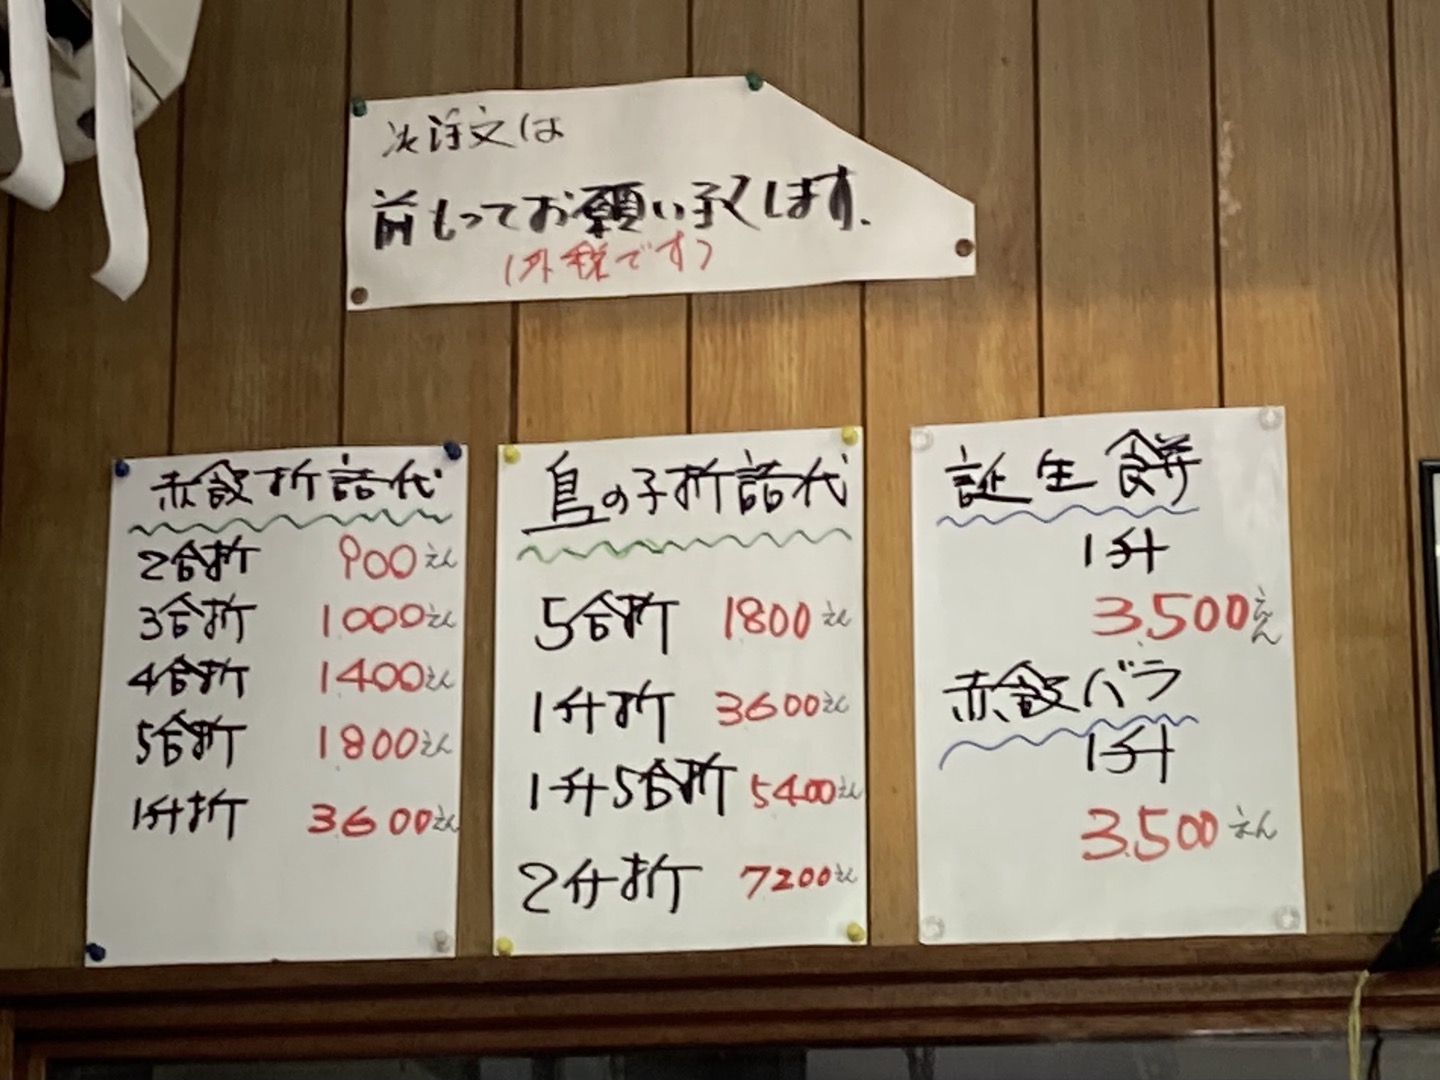 次注文は
前もってお願い致します.
(外税です)
赤飯折詰代
2合折 900えん
3合折 1000えん
4合折 1400えん
5合折 1800えん
1升折 3600えん
鳥の子折詰代
5合折 1800えん
1升折 3600えん
1升5合折 5400えん
2升折 7200えん
誕生餅
1升
3.500えん
赤飯バラ
1升
3.500えん